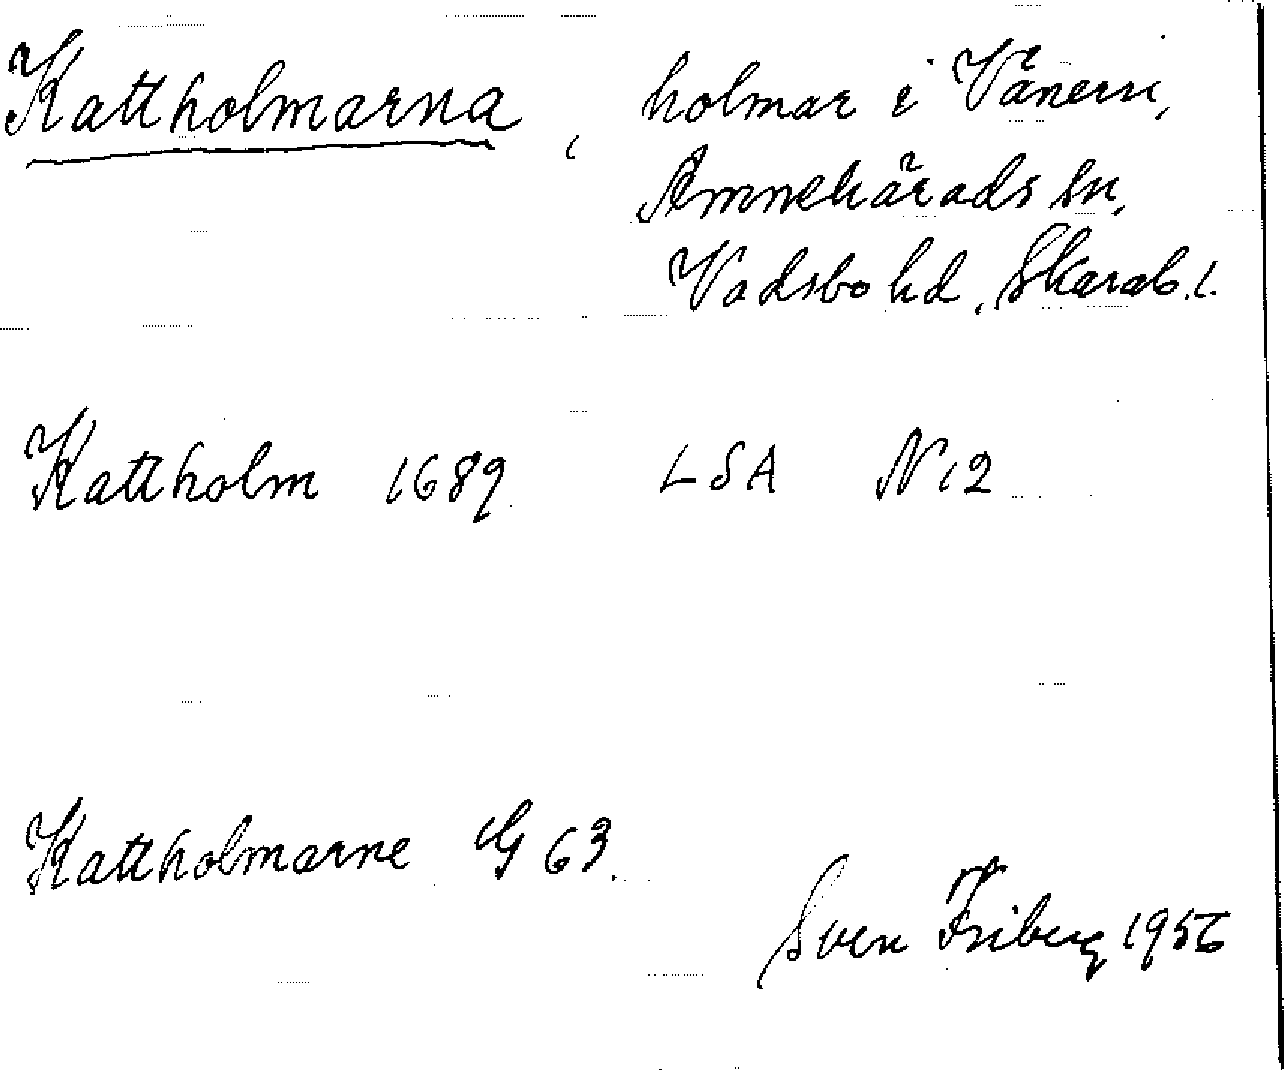 Kattholmarna, holmar i Vänern,
Amnehärads sn,
Vadsbo hd, Skarab. l.
Kattholm 1689 LSA N12
Kattholmarne G 63.
Sven Friberg 1956